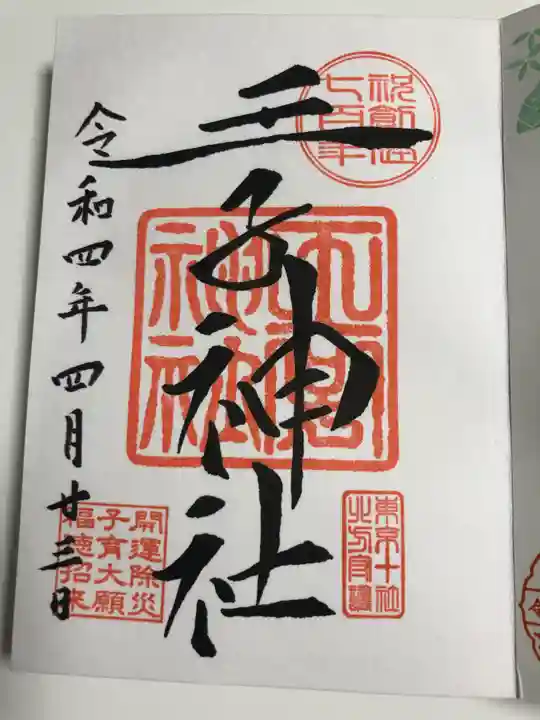 王子神社
令和四年四月廿三日
祝創祀
七百年
王子神社
東京十社
之方守護
開運除災
子育大願
福徳招来